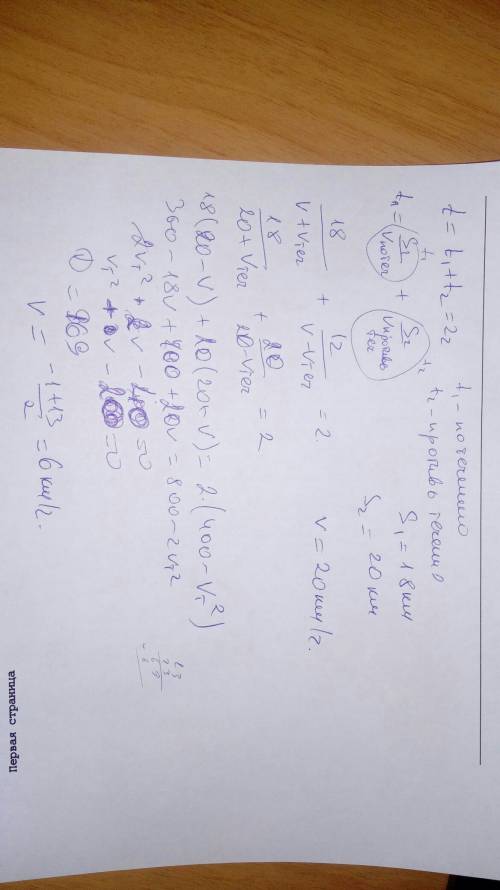 t = t₁ + t₂ = 2ч
t₁ - по течению
t₂ - против течения
tп = S₁/Vпотеч + S₂/Vпротив теч
t₁
t₂
S₁ = 18 км
S₂ = 20 км
18/(V+Vтеч) + 12/(V-Vтеч) = 2
V = 20 км/ч.
18/(20+Vтеч) + 20/(20-Vтеч) = 2
18(20-V) + 20(20+V) = 2·(400-Vт²)
360 - 18V + 400 + 20V = 800 - 2Vт²
2Vт² + 2V - 40 = 0
Vт² + V - 20 = 0
D = 169
V = (-1+13)/2 = 6 км/ч.
Первая страница